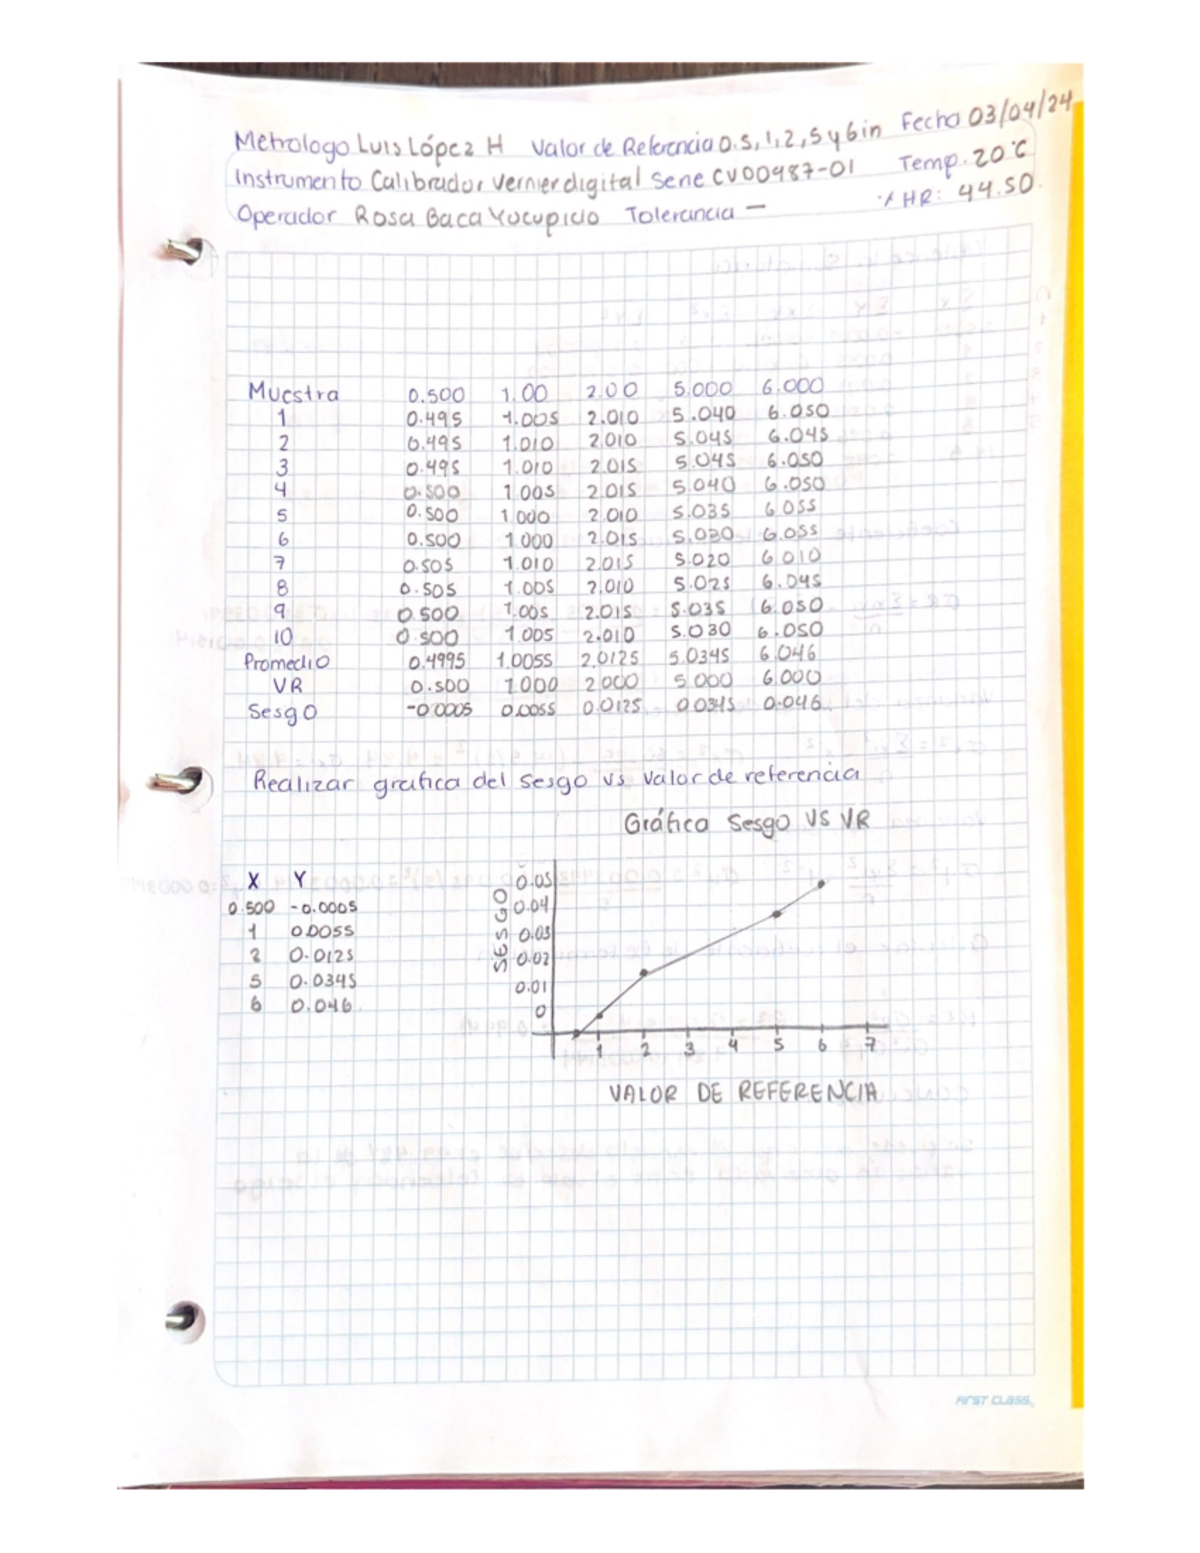 Metrologo Luis López H Valor de Referencia 0.5, 1, 2, 5 y 6 in Fecha 03/04/24
Instrumento Calibrador Vernier digital Serie CV00487-01 Temp. 20°C
Operador Rosa Baca Yocupicio Tolerancia — % HR: 44.50
Muestra 0.500 1.00 2.00 5.000 6.000
1 0.495 1.005 2.010 5.040 6.050
2 0.495 1.010 2.010 5.045 6.045
3 0.495 1.010 2.015 5.045 6.050
4 0.500 1.005 2.015 5.040 6.050
5 0.500 1.000 2.010 5.035 6.055
6 0.500 1.000 2.015 5.030 6.055
7 0.505 1.010 2.015 5.020 6.010
8 0.505 1.005 2.010 5.025 6.045
9 0.500 1.005 2.015 5.035 6.050
10 0.500 1.005 2.010 5.030 6.050
Promedio 0.4995 1.0055 2.0125 5.0345 6.046
VR 0.500 1.000 2.000 5.000 6.000
Sesgo -0.0005 0.0055 0.0125 0.0345 0.046
Realizar grafica del sesgo vs Valor de referencia
Gráfica Sesgo VS VR
X Y
0.500 -0.0005
1 0.0055
2 0.0125
5 0.0345
6 0.046
SESGO
0.05
0.04
0.03
0.02
0.01
0
1 2 3 4 5 6 7
VALOR DE REFERENCIA
FIRST CLASS